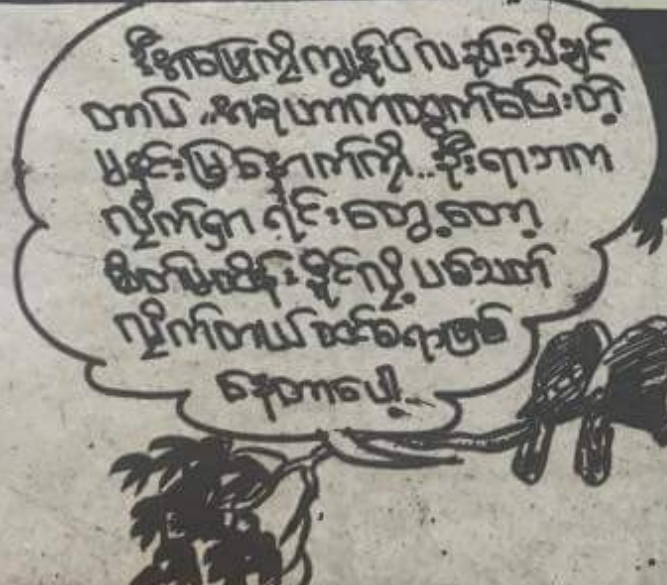 ဦးအဖြေကိုကျွန်ုပ်လည်းသိချင်
တာပဲ..အရဟာကထွက်ပြေးတဲ့
မနှင်းမြနောက်ကို..ဦးရာဘက
လိုက်ရှာရင်းတွေ့တော့
စိတ်မထိန်းနိုင်လို့ပစ်သတ်
လိုက်တယ်ထင်စရာဖြစ်
နေတာပေါ့..